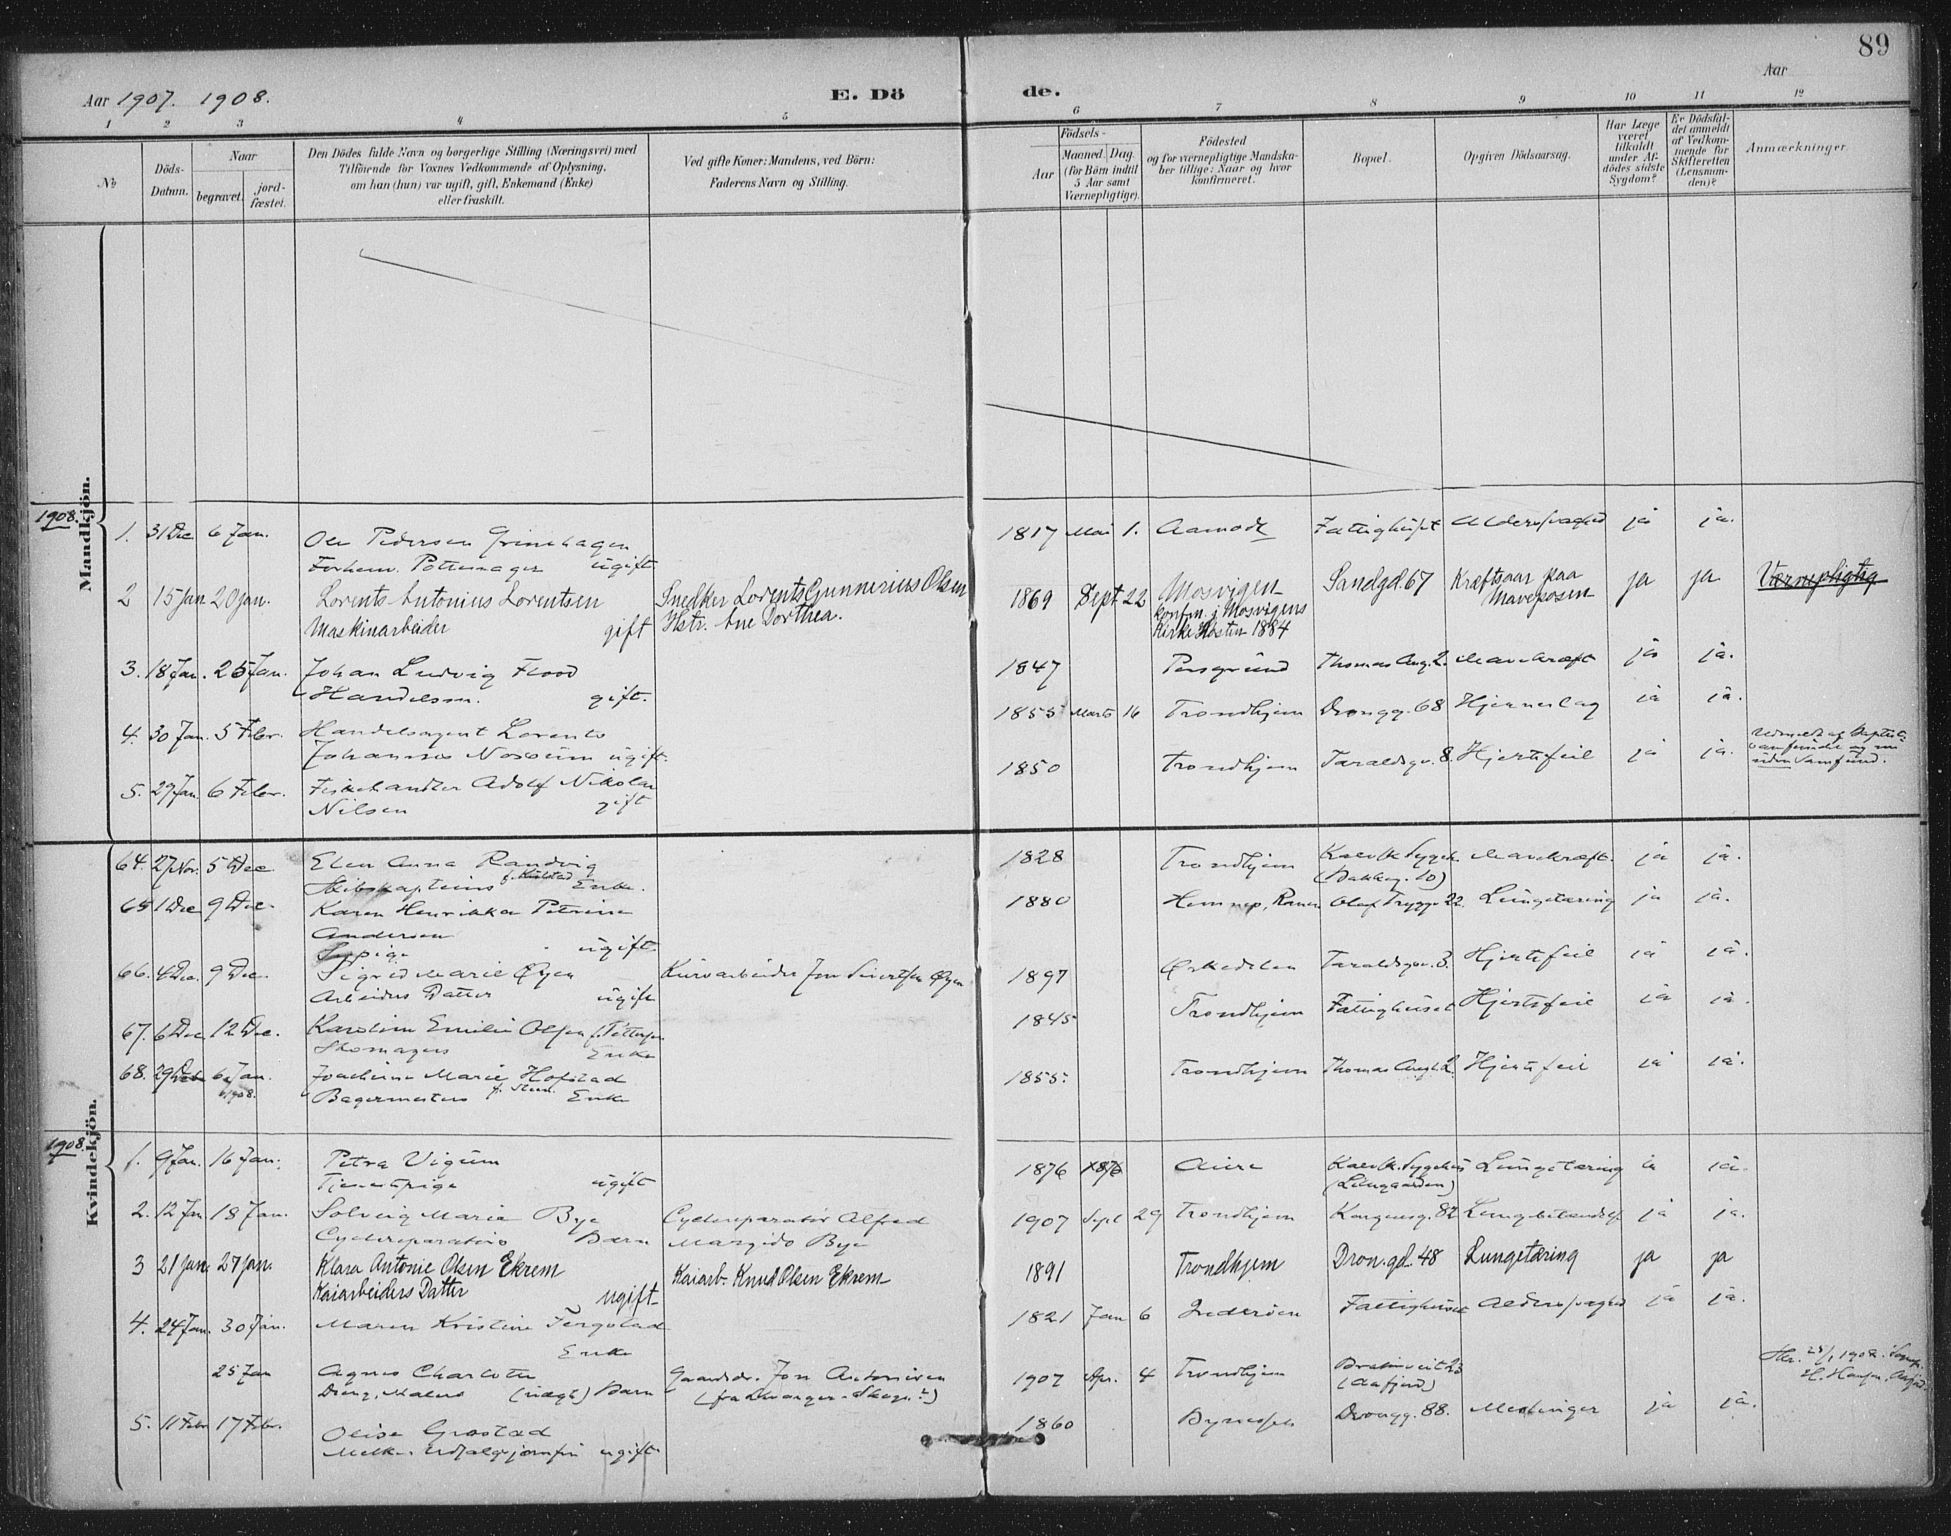 89
Aar 1907. 1908.
E. Dö
de.
Aar
1 2 3 4 5 6 7 8 9 10 11 12
№
Döds-
Datum.
Naar
begravet.
jord-
fæstet.
Den Dödes fulde Navn og borgerlige Stilling (Næringsvei) med
Tilförende for Voxnes Vedkommende af Oplysning,
om han (hun) var ugift, gift, Enkemand (Enke)
eller fraskilt.
Ved gifte Koner: Mandens, ved Börn:
Faderens Navn og Stilling.
Födsels-
Aar
Maaned. Dag.
(for Börn indtil
5 Aar samt
Værnepligtige).
Födested
og for værnepligtige Mandska-
ber tillige: Naar og hvor
konfirmeret.
Bopæl.
Opgiven Dödsaarsag.
Har Læge
været
tilkaldt
under Af-
dödes sidste
Sygdom?
Er Dödsfal-
det anmeldt
af Vedkom-
mende for
Skifteretten
(Lensman-
den)?
Anmærkninger.
Mandkjön.
1908.
1. 31 Dec 6 Jan. Ole Pedersen Grinehagen 1817 Mai 1. Aamodt Fattighuset Alderssvaghed ja ja.
Forhen. Pottemager ugift
2 15 Jan 20 Jan. Lorents Antonius Lorentsen Snedker Lorents Gunnerius Olsen 1869 Sept 22 Mosvigen Sandgd. 67 Kræftsaar paa ja ja Værnepligtig
Maskinarbeider gift Hstr. Ane Dorthea. konfm. i Mosvigens Maveposen
Kirke Høsten 1884
3. 18 Jan. 25 Jan. Johan Ludvig Flood 1847 Porsgrund Thomas Ang. 2. Mavekræft ja ja.
Handelsm. gift.
4. 30 Jan. 5 Febr. Handelsagent Lorents 1855 Marts 16 Trondhjem Drongg. 68 Hjerneslag ja ja.
Johannes Noreum ugift.
5. 29 Jan. 6 Febr. Fiskehandler Adolf Nikolai 1850 Trondhjem Taraldsgv. 8. Hjertefeil ja ja. Udmeldt af
samfundet og nu
uden Samfund.
Nilsen gift
Kvindekjön.
64. 27 Nov. 5 Dec. Elen Anna Randvig 1828 Trondhjem Katolk. Sygeh. Mavekræft. ja ja.
Skibskapteins f. Kulstad Enke. (Bakkeg. 10)
65 1 Dec 9 Dec. Karen Henrikka Petrine 1880 Hemnes, Ranen Olaf Trygg. 22. Lungetæring ja ja.
Andersen
Sypige ugift.
66. 4 Dec. 9 Dec. Sigrid Marie Øyen Kurvarbeider Jon Sivertsen Øyen 1897 Ørkedalen Taraldsgv. 3. Hjertefeil ja ja.
Arbeiders Datter ugift
67. 6 Dec. 12 Dec. Karoline Emilie Olsen f. Pettersen 1845 Trondhjem Fattighuset Hjertefeil ja ja.
Skomagers Enke
68. 29 Dec 6 Jan. Joachime Marie Hofstad 1855 Trondhjem Thomas Angt. 2. Hjertefeil ja ja.
1908. Bagermesters f. Steen. Enke
1908.
1. 9 Jan. 16 Jan. Petra Vigum 1876 1876 Aure Katolk. Sygehus Lungetæring ja ja.
Tjenestepige ugift
2. 12 Jan. 18 Jan. Solveig Marie Bye Cyclereparatör Alfred 1907 Sept 29 Trondhjem Kongensg. 82 Lungebetændelse ja ja.
Cyclereparatörs Barn Margido Bye
3 21 Jan. 27 Jan. Klara Antonie Olsen Ekrem Kaiarb. Knud Olsen Ekrem 1891 Trondhjem Dron.gd. 48 Lungetæring ja ja
Kaiarbeiders Datter ugift
4. 24 Jan. 30 Jan. Maren Kristine Fergstad 1821 Jan 6 Inderöen Fattighuset Alderssvaghed ja ja.
Enke
25 Jan Agnes Charlotte Gaardsdr. Jon Antonisen 1907 Apr. 4 Trondhjem
(uægt) Barn
5. 11 Febr 17 Febr. Olise Grøstad 1860 Byneset Drongg. 88. ja ja.
ugift